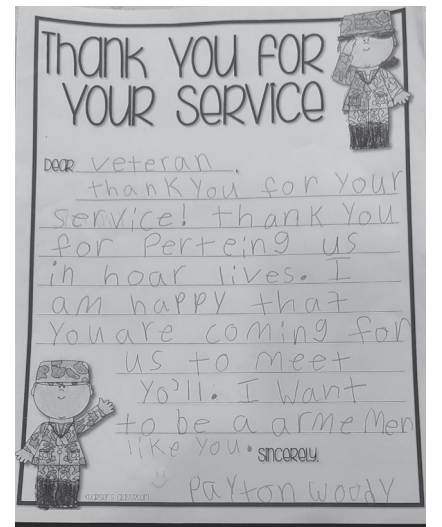 Thank you for
your service
Dear veteran,
thank you for your
service! thank you
for Perteing us
in hoar lives. I
am happy that
you are coming for
us to meet
yo'll. I want
to be a arme men
like you.
Sincerely,
Payton woody